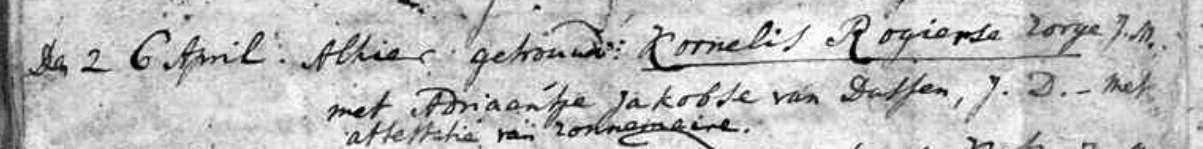 Den 26 April. Alhier getrouwd: Kornelis Rogierse Zorge J. M.
met Adriaantje Jakobse van Dussen, J. D. - met
attestatie van Zonnemaire.